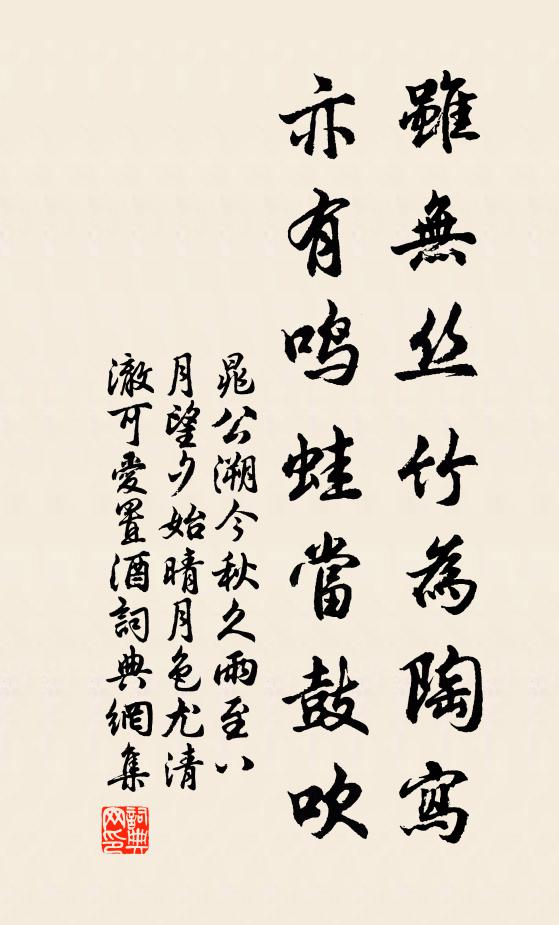 雖無丝竹為陶寫
亦有鸣蛙當鼓吹
晁公溯今秋久雨至八
月望夕始晴月色尤清
澈可愛置酒詞典網集
詞典
网印